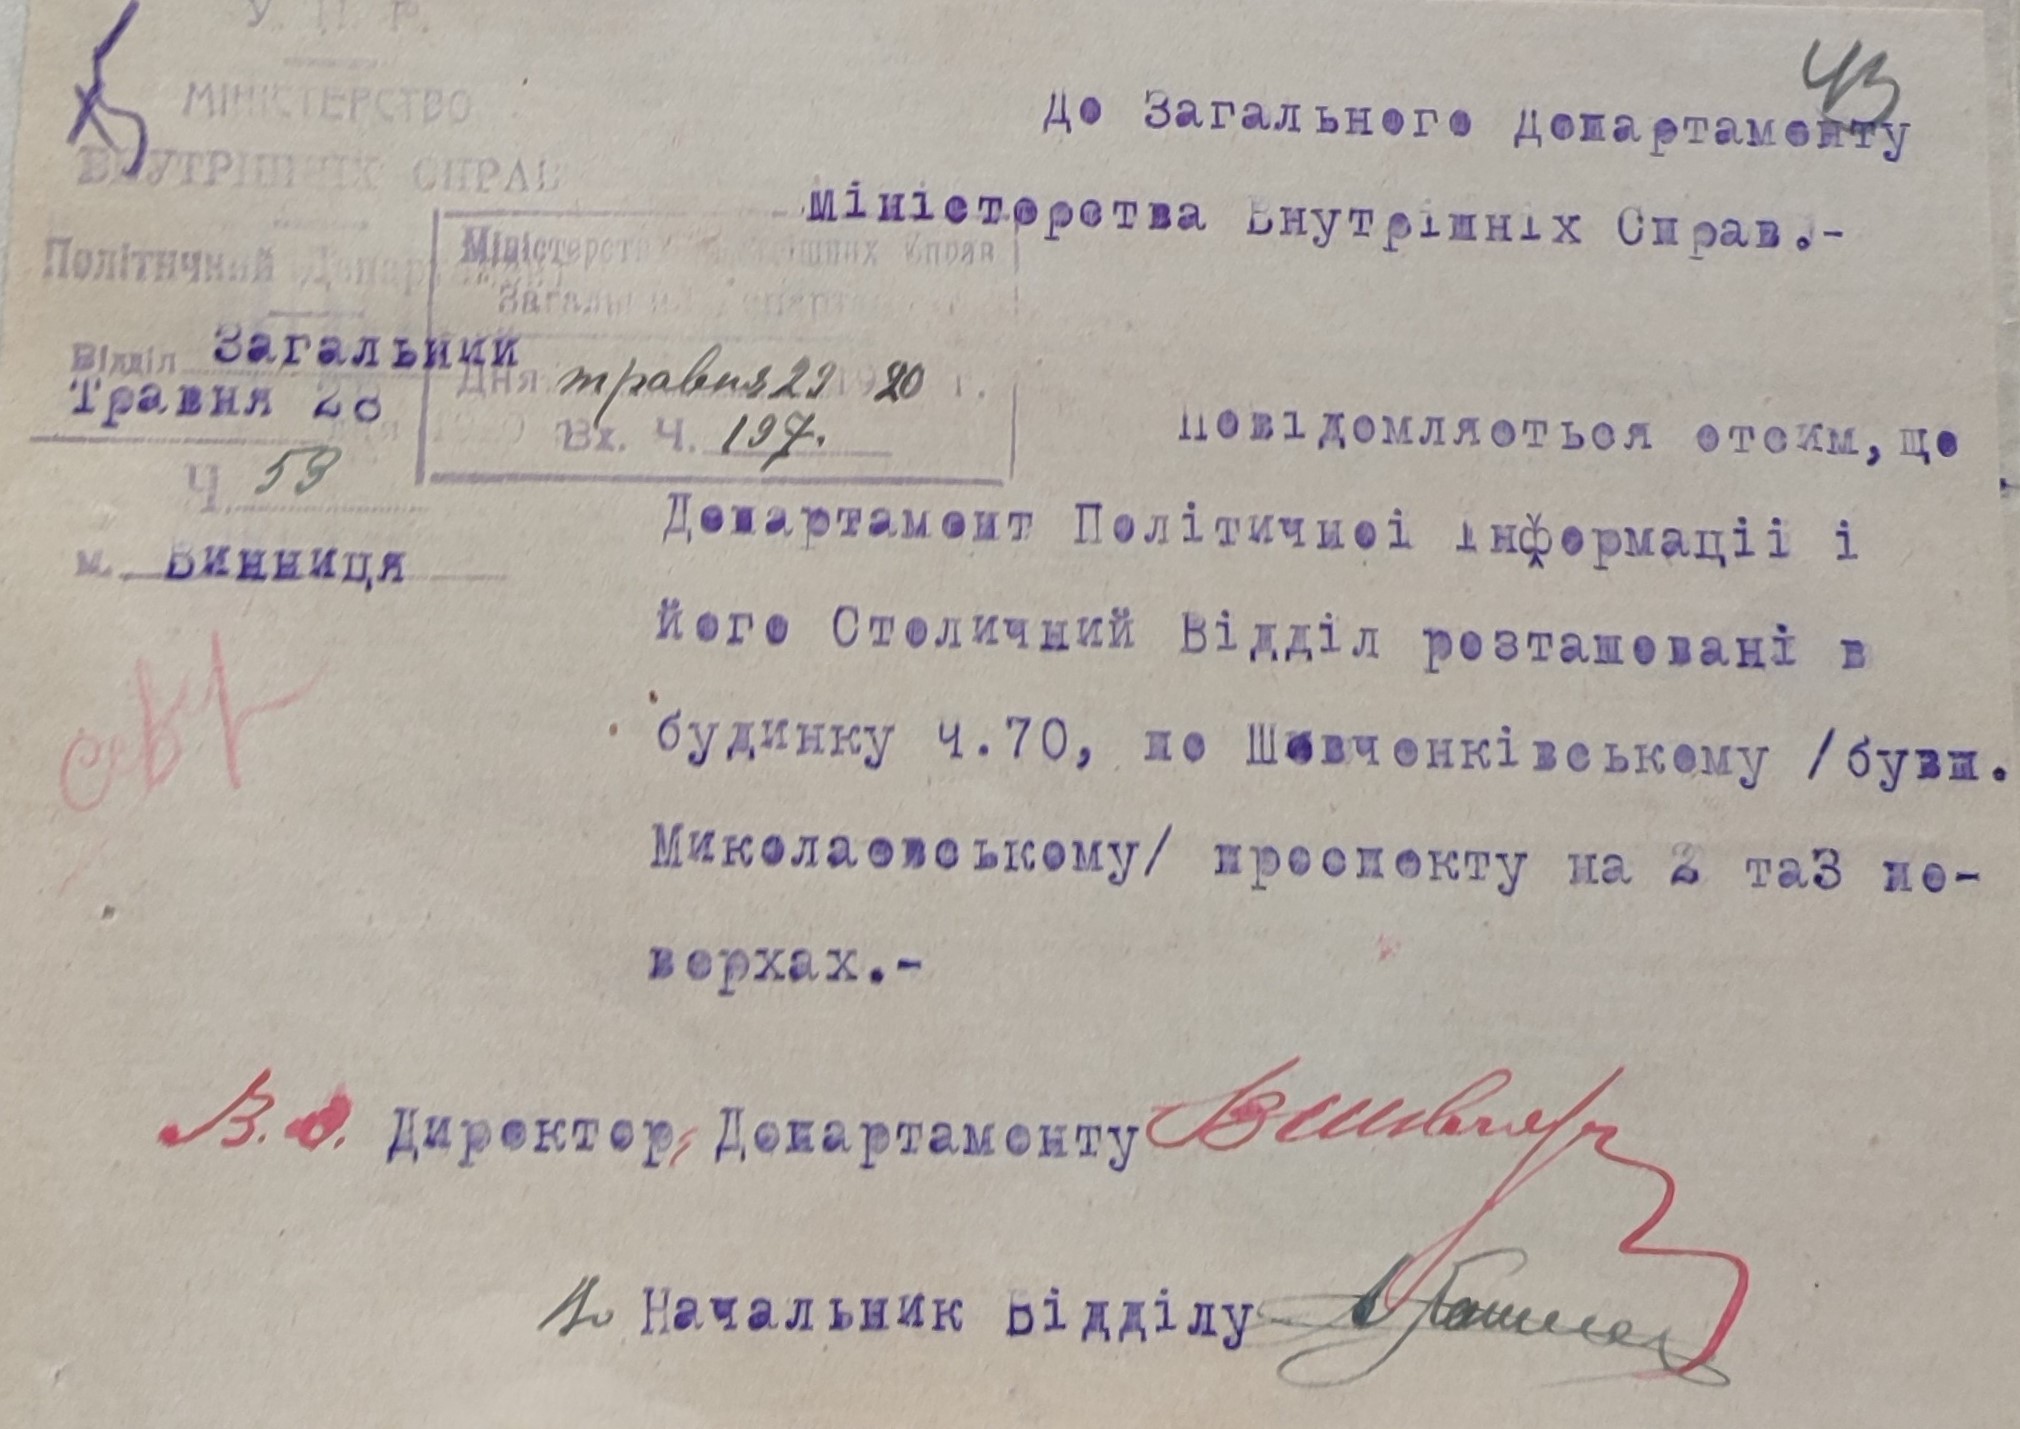 У. Н. Р.
МІНІСТЕРСТВО
ВНУТРІШНІХ СПРАВ
Політичний Департамент
Відділ Загальний
Травня 28
Ч. 53
м. Винниця
Міністерство Внутрішних Справ
Загальний Департамент
Дня травня 29 1920 г.
Вх. Ч. 197.
43
До Загального Департаменту
Міністерства Внутрішніх Справ.-
Повідомляється отсим, що
Департамент Політичноі Інформаціі і
його Столичний Відділ розташовані в
будинку ч.70, по Шевченківському /бувш.
Миколаєвському/ проспекту на 2 та3 по-
верхах.-
В. о. Директор, Департаменту
Начальник Відділу